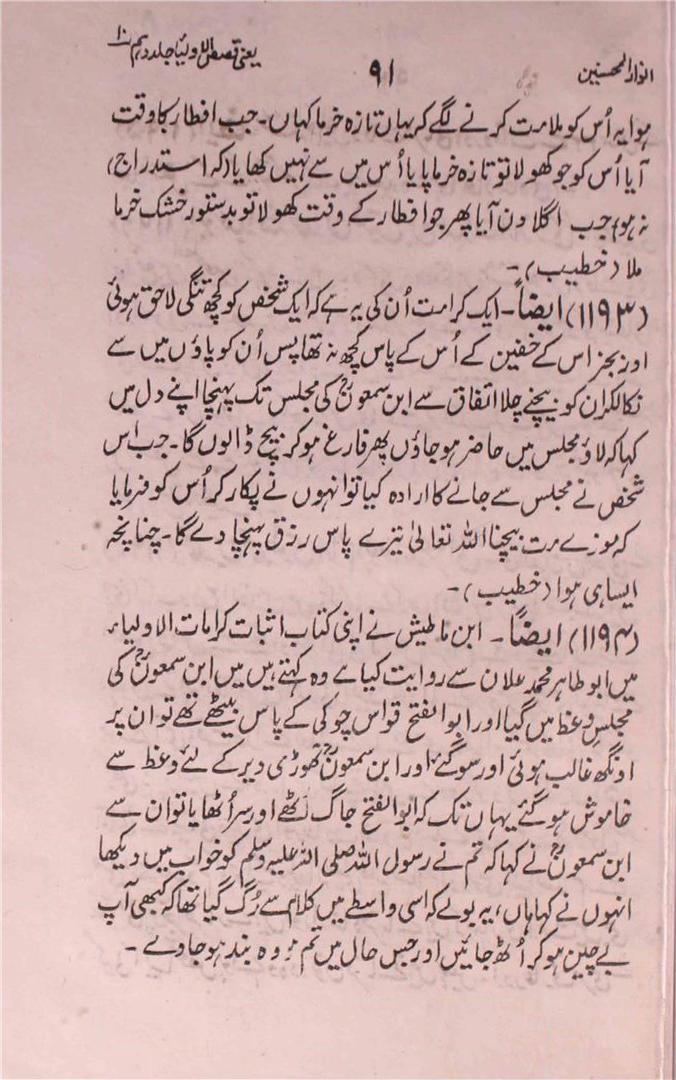 انوار المحسنین ۹۱ یعنی قصص الاولیاء جلد دہم ۱۰
ہوا یہ اُس کو ملامت کرنے لگے کہ یہاں تازہ خرما کہاں۔ جب افطار کا وقت
آیا اُس کو جو کھولا تو تازہ خرما پایا اُس میں سے نہیں کھایا (کہ استدراج)
نہ ہو) جب اگلا دن آیا پھر جو افطار کے وقت کھولا تو بدستور خشک خرما
ملا (خطیب)۔
(۱۱۹۳) ایضاً۔ ایک کرامت اُن کی یہ ہے کہ ایک شخص کو کچھ تنگی لاحق ہوئی
اور بجز اس کے خفین کے اُس کے پاس کچھ نہ تھا پس اُن کو پاؤں میں سے
نکالکر ان کو بیچنے چلا اتفاق سے ابن سمعونؒ کی مجلس تک پہنچا اپنے دل میں
کہا کہ لاؤ مجلس میں حاضر ہو جاؤں پھر فارغ ہو کر بیچ ڈالوں گا۔ جب اُس
شخص نے مجلس سے جانے کا ارادہ کیا تو انہوں نے پکار کر اُس کو فرمایا
کہ موزے مت بیچنا اللہ تعالیٰ تیرے پاس رزق پہنچا دے گا۔ چنانچہ
ایسا ہی ہوا (خطیب)۔
(۱۱۹۴) ایضاً۔ ابن ماطیش نے اپنی کتاب اثبات کرامات الاولیاء
میں ابو طاہر محمد علان سے روایت کیا ہے وہ کہتے ہیں میں ابن سمعونؒ کی
مجلس وعظ میں گیا اور ابوالفتح قواس چوکی کے پاس بیٹھے تھے تو ان پر
اونگھ غالب ہوئی اور سو گئے اور ابن سمعونؒ تھوڑی دیر کے لئے وعظ سے
خاموش ہو گئے یہاں تک کہ ابوالفتح جاگ اٹھے اور سر اُٹھایا تو ان سے
ابن سمعونؒ نے کہا کہ تم نے رسول اللہ صلی اللہ علیہ وسلم کو خواب میں دیکھا
انہوں نے کہا ہاں، یہ بولے کہ اسی واسطے میں کلام سے رُک گیا تھا کہ کبھی آپ
بے چین ہو کر اُٹھ جائیں اور جس حال میں تم ہو وہ بند ہو جاوے۔